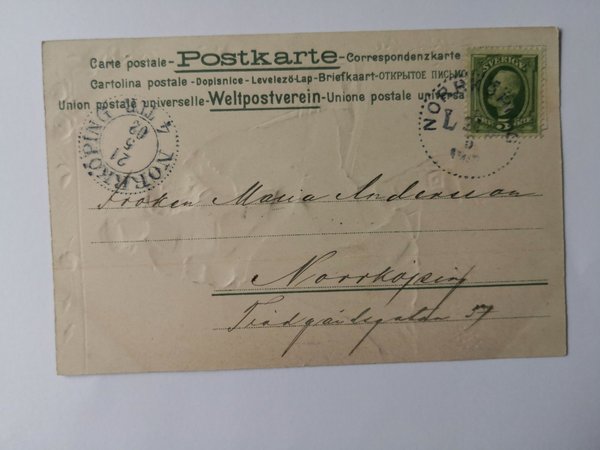 Carte postale - Postkarte - Correspondenzkarte
Cartolina postale - Dopisnice - Levelező-Lap - Briefkaart - ОТКРЫТОЕ ПИСЬМО
Union postale universelle - Weltpostverein - Unione postale universa
SVERIGE
5 ÖRE
NORRKÖPING
L
NORRKÖPING 4 TUR
21 5 02
Fröken Maria Andersson
Norrköping
Trädgårdsgatan 57